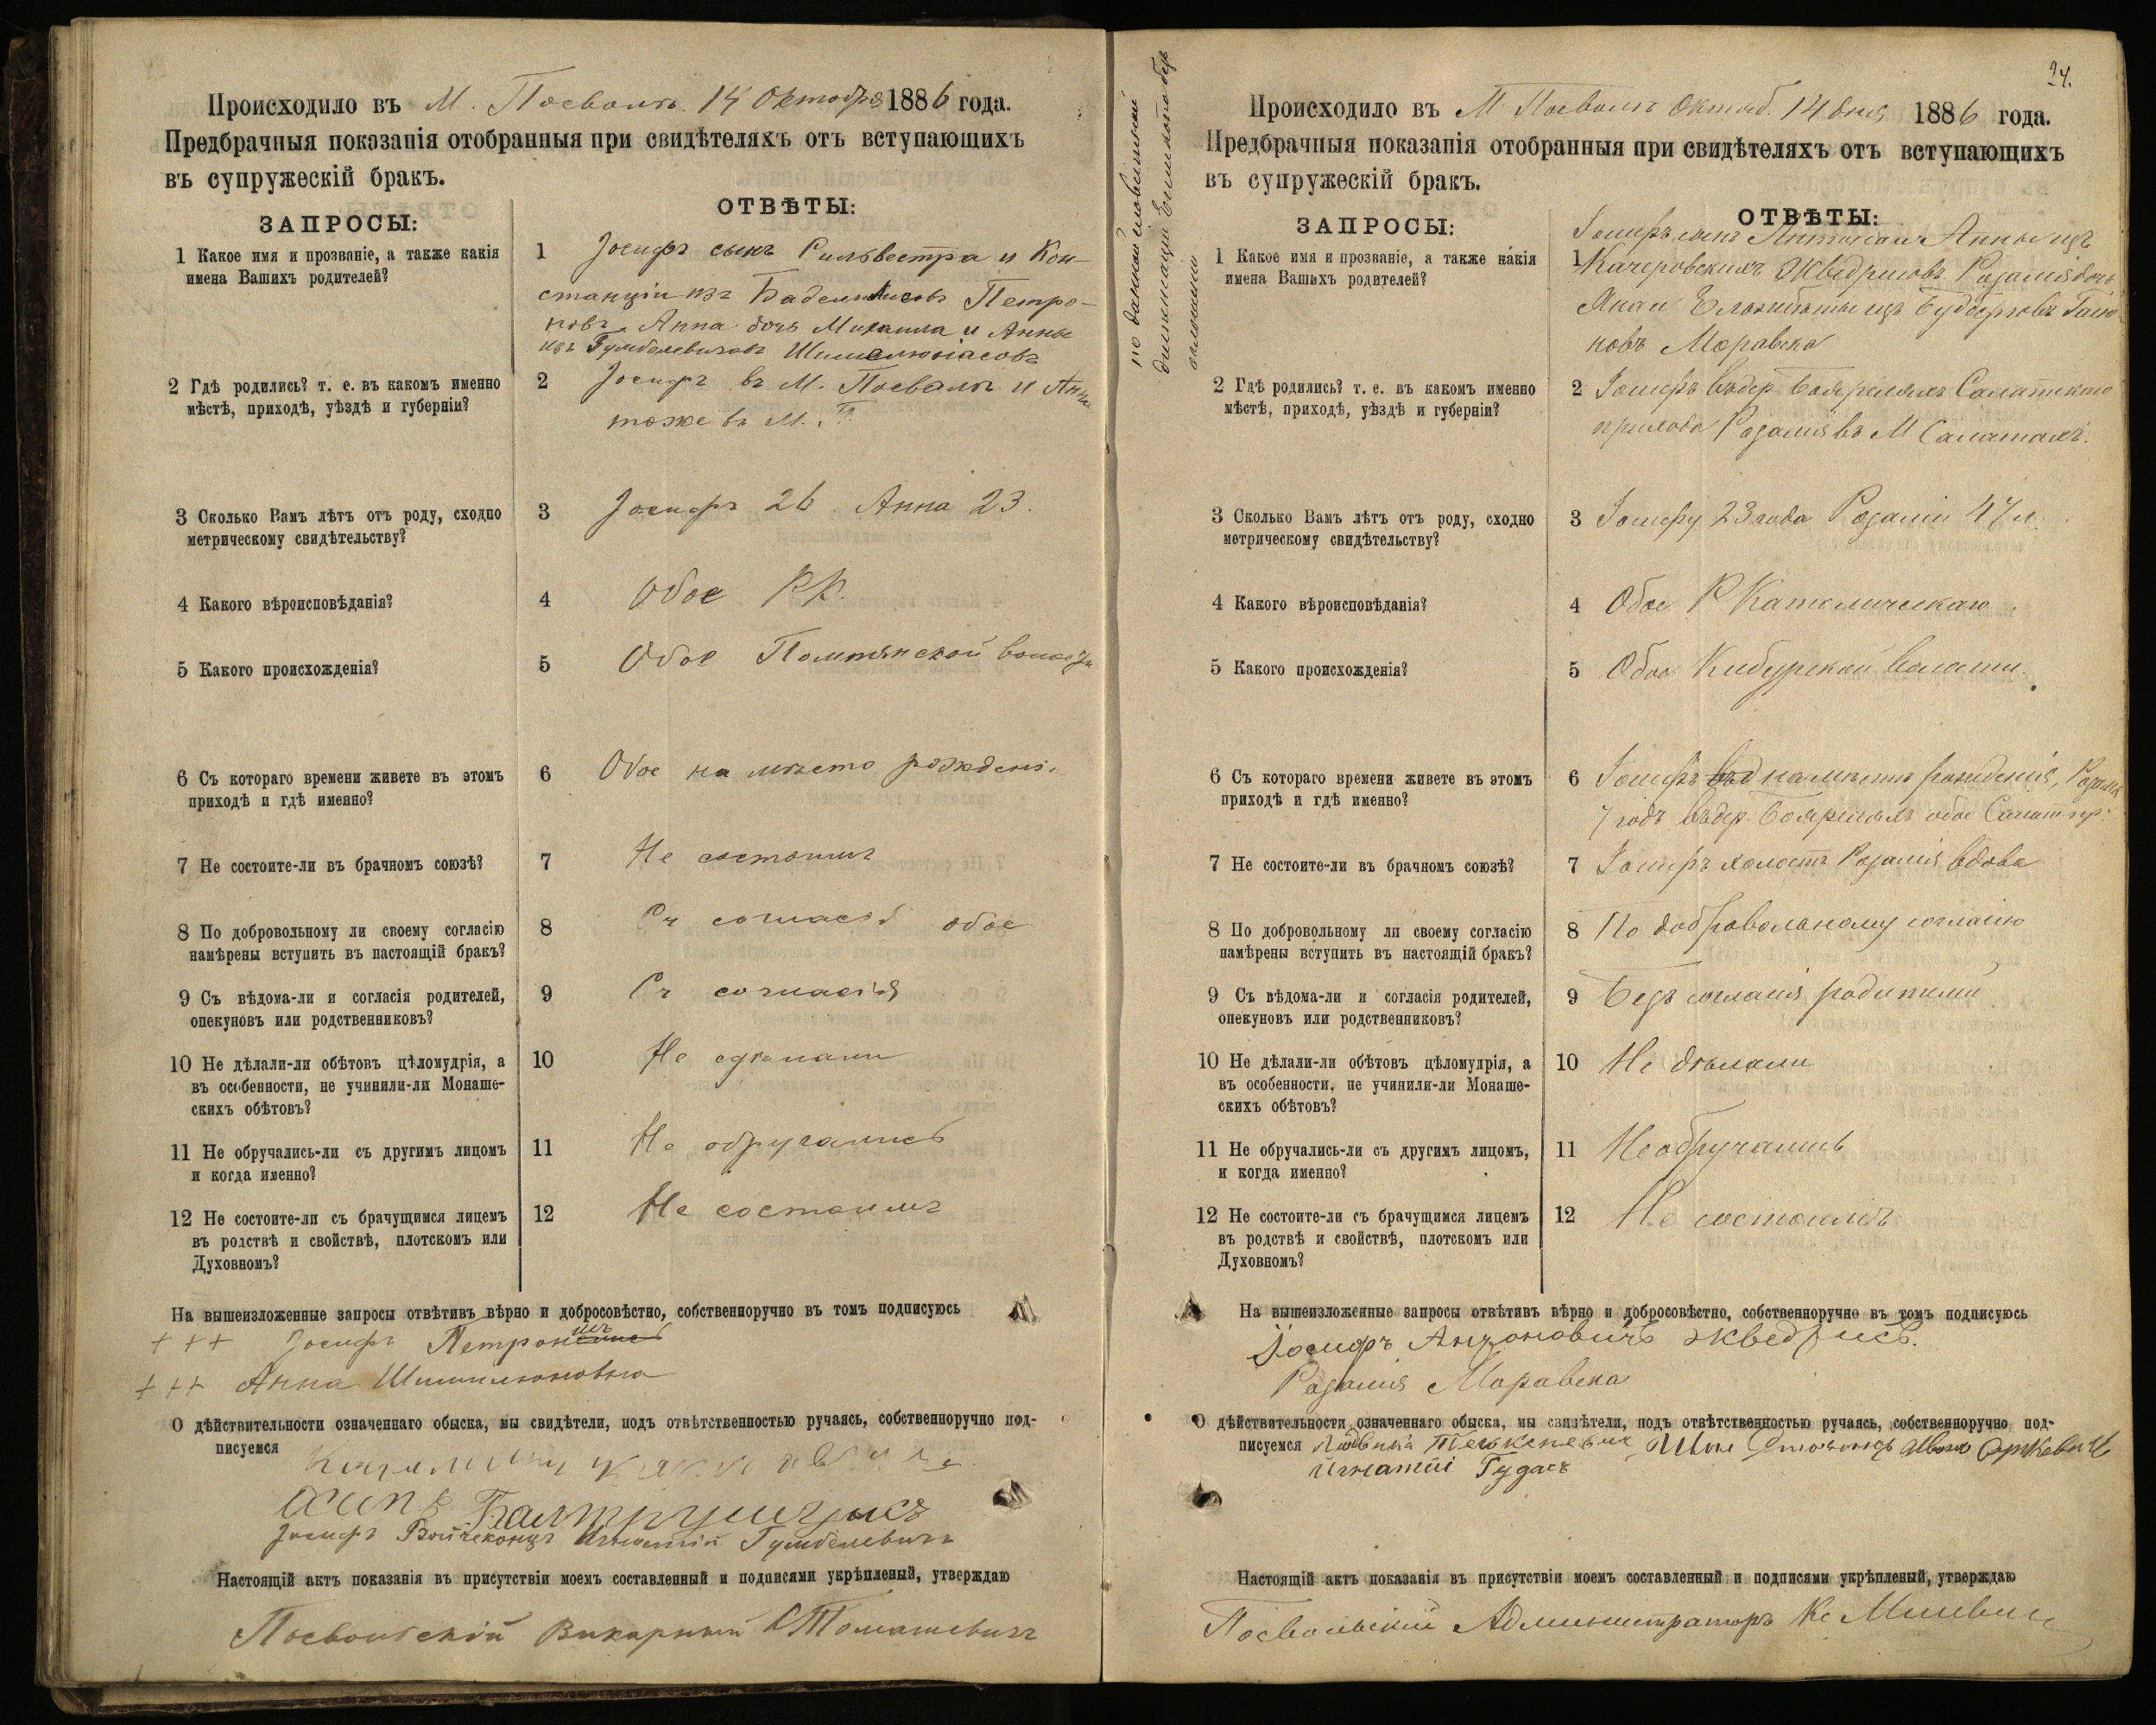 Происходило въ М. Посволь. 14 Октобря 1886 года.
Предбрачныя показанія отобранныя при свидѣтеляхъ отъ вступающихъ
въ супружескій бракъ.
ЗАПРОСЫ:
ОТВѢТЫ:
1 Какое имя и прозваніе, а также какія
имена Вашихъ родителей?
1 Іосифъ сынъ Сильвестра и Кон-
станціи изъ Петро-
новъ, Анна дочь Михаила и Анны
изъ Гумбелевичовъ
2 Гдѣ родились? т. е. въ какомъ именно
мѣстѣ, приходѣ, уѣздѣ и губерніи?
2 Іосифъ въ М. Посволь и Анна
тоже въ М. П.
3 Сколько Вамъ лѣтъ отъ роду, сходно
метрическому свидѣтельству?
3 Іосифъ 26. Анна 23.
4 Какого вѣроисповѣданія?
4 Обое Р.К.
5 Какого происхожденія?
5 Обое волости
6 Съ котораго времени живете въ этомъ
приходѣ и гдѣ именно?
6 Обое на мѣсто рожденія
7 Не состоите-ли въ брачномъ союзѣ?
7 Не состоимъ
8 По добровольному ли своему согласію
намѣрены вступить въ настоящій бракъ?
8 Съ согласія обое
9 Съ вѣдома-ли и согласія родителей,
опекуновъ или родственниковъ?
9 Съ согласія
10 Не дѣлали-ли обѣтовъ цѣломудрія, а
въ особенности, не учинили-ли Монаше-
скихъ обѣтовъ?
10 Не сдѣлали
11 Не обручались-ли съ другимъ лицомъ
и когда именно?
11 Не обручались
12 Не состоите-ли съ брачущимся лицемъ
въ родствѣ и свойствѣ, плотскомъ или
Духовномъ?
12 Не состоимъ
На вышеизложенные запросы отвѣтивъ вѣрно и добросовѣстно, собственноручно въ томъ подписуюсь
+++ Іосифъ
+++ Анна
О дѣйствительности означеннаго обыска, мы свидѣтели, подъ отвѣтственностью ручаясь, собственноручно под-
писуемся
Осипъ
Іосифъ Игнатій Гумбелевичъ
Настоящій актъ показанія въ присутствіи моемъ составленный и подписями укрѣпленый, утверждаю
Посвольскій Викарный К Томашевичъ
по данной словесной
24.
Происходило въ М Посволь Октяб. 14 дня 1886 года.
Предбрачныя показанія отобранныя при свидѣтеляхъ отъ вступающихъ
въ супружескій бракъ.
ЗАПРОСЫ:
ОТВѢТЫ:
1 Какое имя и прозваніе, а также какія
имена Вашихъ родителей?
Іосифъ сынъ Антона и Анны изъ
1 Качеровскихъ Жведрисовъ Розалія дочь
Яна и Елизабеты изъ
новъ Моравска
2 Гдѣ родились? т. е. въ какомъ именно
мѣстѣ, приходѣ, уѣздѣ и губерніи?
2 Іосифъ въ дер. Салатского
прихода Розалія въ М Салатахъ.
3 Сколько Вамъ лѣтъ отъ роду, сходно
метрическому свидѣтельству?
3 Іосифу 23 года Розаліи 47 л.
4 Какого вѣроисповѣданія?
4 Обое Р Католическаго
5 Какого происхожденія?
5 Обое Кибурской волости.
6 Съ котораго времени живете въ этомъ
приходѣ и гдѣ именно?
6 Іосифъ на мѣстѣ рожденія, Розалія
7 годъ въ дер. обое Салат пр.
7 Не состоите-ли въ брачномъ союзѣ?
7 Іосифъ холостъ Розалія вдова
8 По добровольному ли своему согласію
намѣрены вступить въ настоящій бракъ?
8 По добровольному согласію
9 Съ вѣдома-ли и согласія родителей,
опекуновъ или родственниковъ?
9 Безъ согласія родителей
10 Не дѣлали-ли обѣтовъ цѣломудрія, а
въ особенности, не учинили-ли Монаше-
скихъ обѣтовъ?
10 Не дѣлали
11 Не обручались-ли съ другимъ лицомъ,
и когда именно?
11 Необручались
12 Не состоите-ли съ брачущимся лицемъ
въ родствѣ и свойствѣ, плотскомъ или
Духовномъ?
12 Не состоимъ
На вышеизложенные запросы отвѣтивъ вѣрно и добросовѣстно, собственноручно въ томъ подписуюсь
Іосифъ Антоновичъ Жведрисъ.
Розалия Моравска
О дѣйствительности означеннаго обыска, мы свидѣтели, подъ отвѣтственностью ручаясь, собственноручно под-
писуемся
Игнатій Гудасъ
Настоящій актъ показанія въ присутствіи моемъ составленный и подписями укрѣпленый, утверждаю
Посвольскій Администраторъ Кс